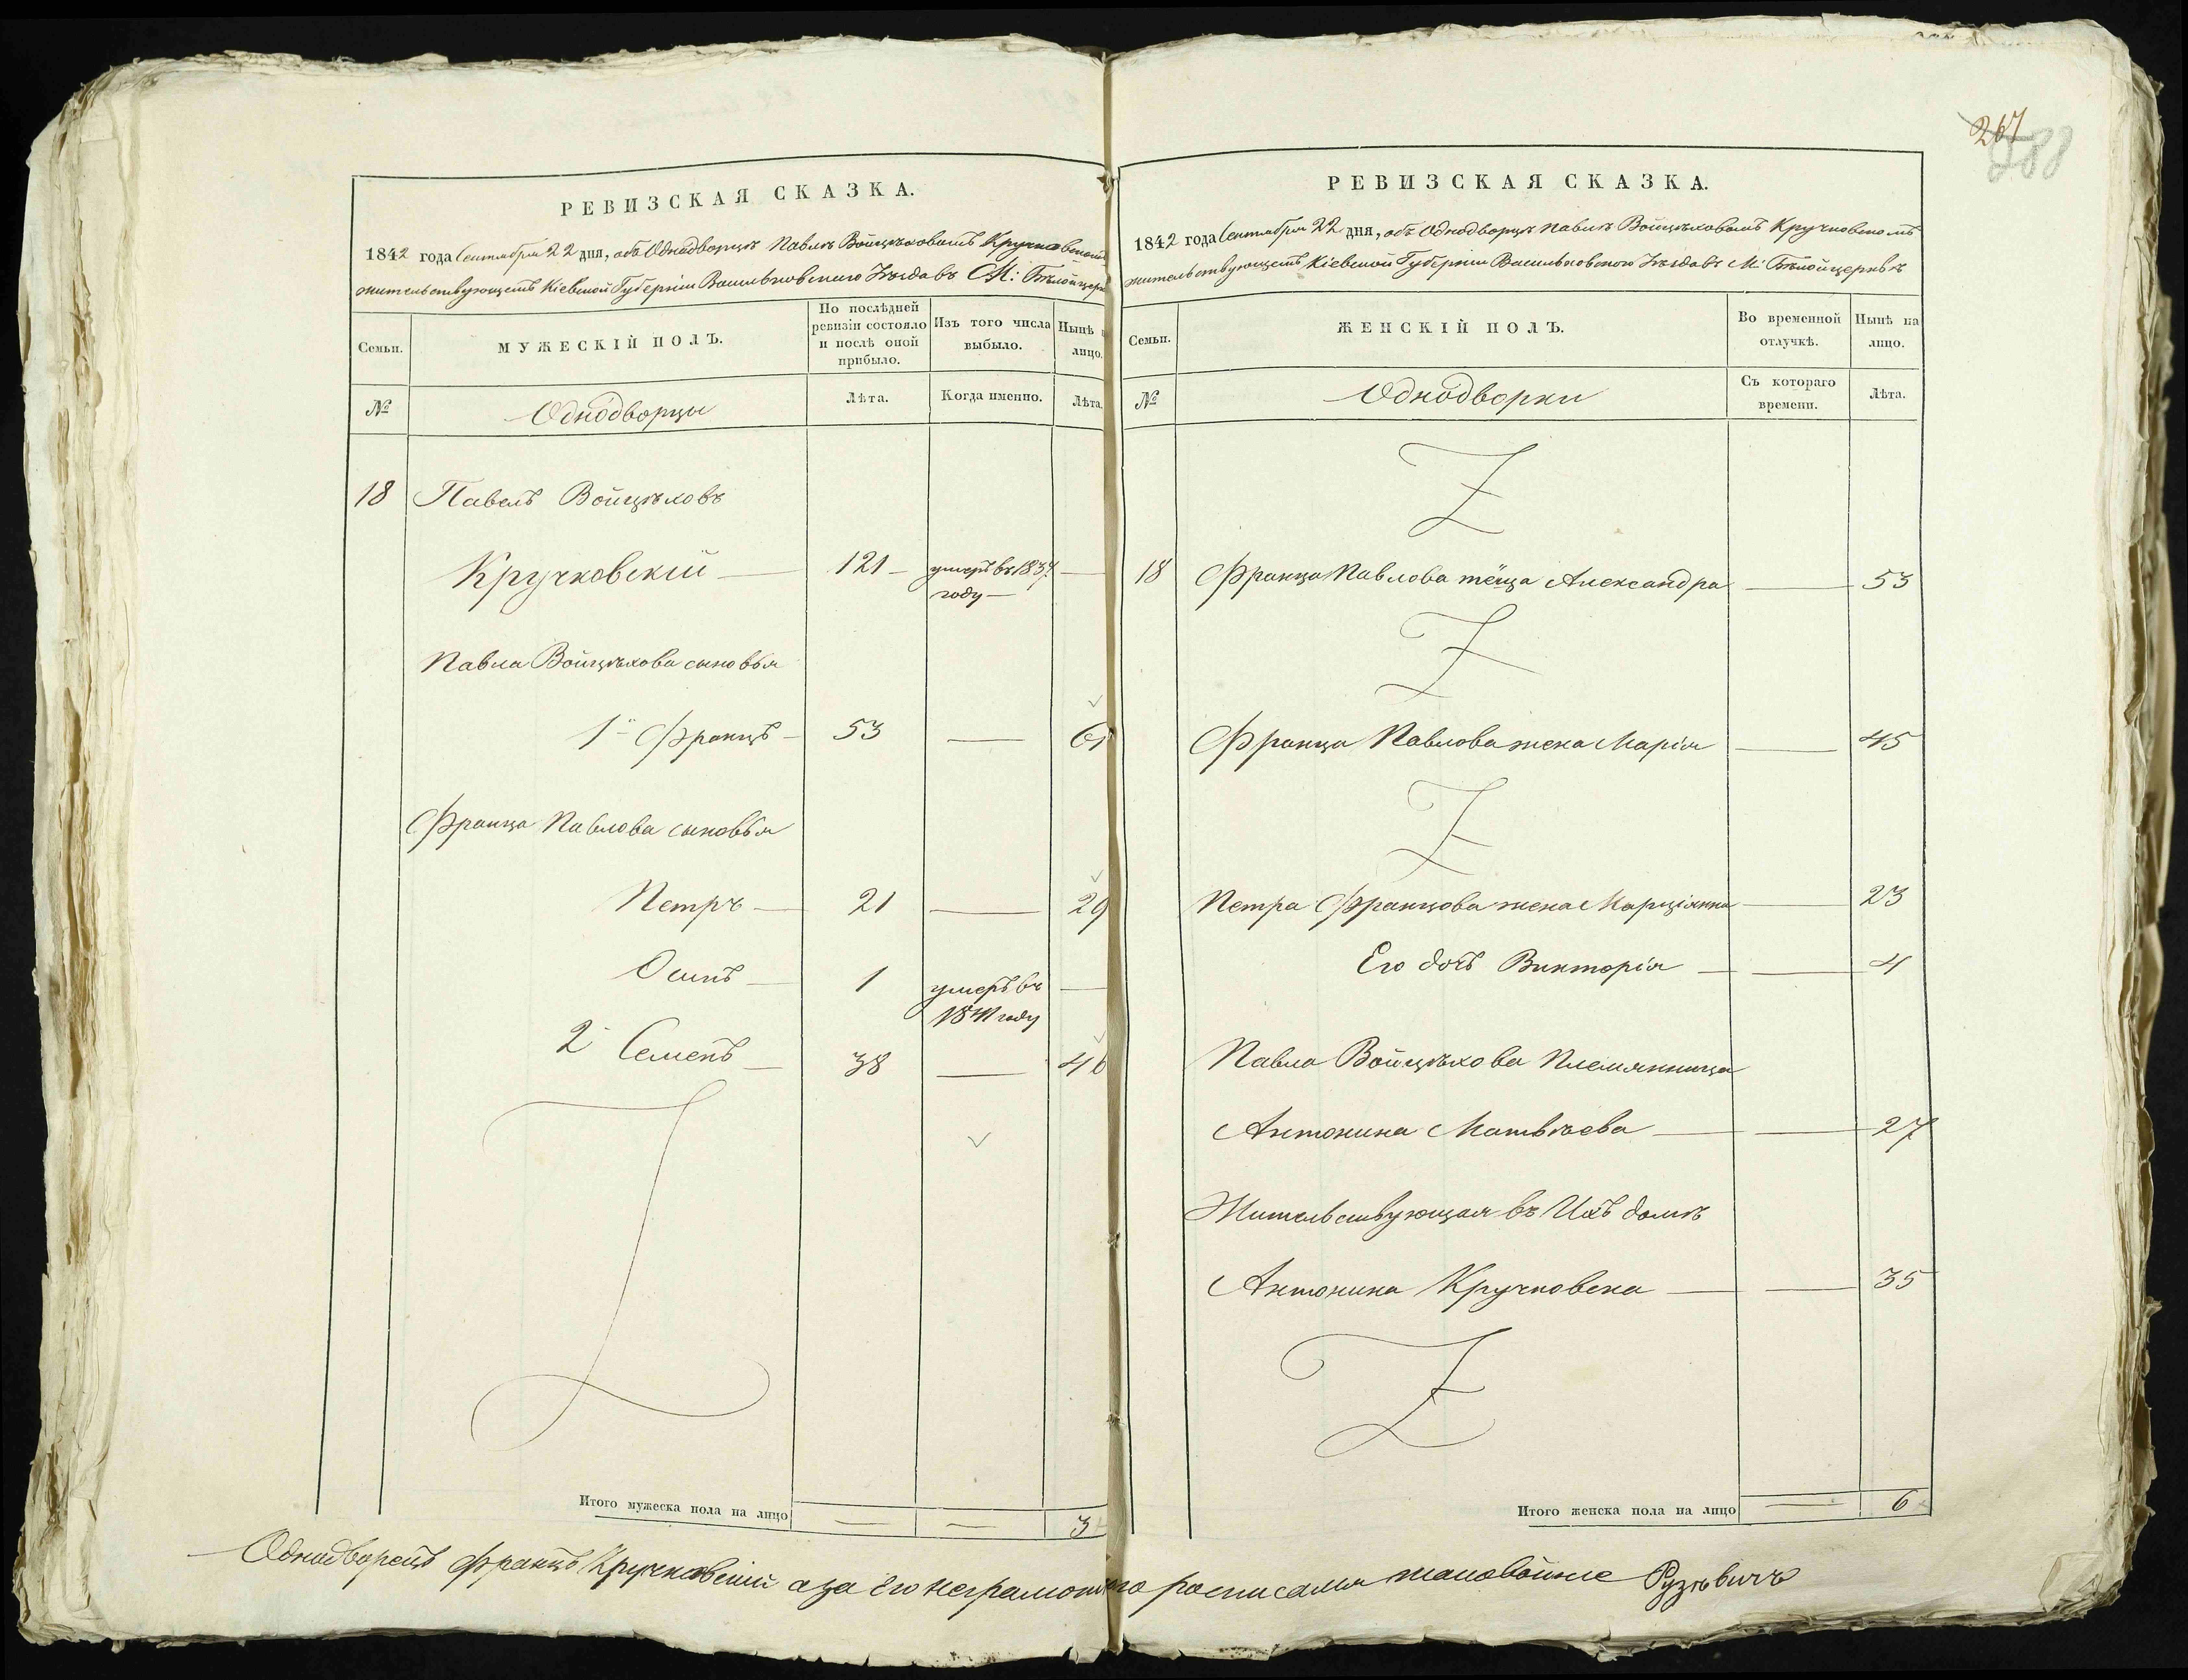 267
288
РЕВИЗСКАЯ СКАЗКА.
1842 года Сентября 22 дня, объ Однодворцѣ Павлѣ Войцѣховѣ Кручковском
жительствующемъ Кіевской Губерніи Васильковскаго Уѣзда въ М: Бѣлой церк
Семьи.
МУЖЕСКІЙ ПОЛЪ.
По послѣдней
ревизіи состояло
и послѣ оной
прибыло.
Изъ того числа
выбыло.
Нынѣ н
лицо.
№
Однодворцы
Лѣта.
Когда именно.
Лѣта.
18 Павелъ Войцѣховъ
Кручковскій — 121 — умеръ въ 1837 —
году —
Павла Войцѣхова сыновья
1й Францъ — 53 — 61
Франца Павлова сыновья
Петръ — 21 — 29
Осипъ — 1 умеръ въ —
1841 году
2й Семенъ — 38 — 46
Итого мужеска пола на лицо — — 3
РЕВИЗСКАЯ СКАЗКА.
1842 года Сентября 22 дня, объ Однодворцѣ Павлѣ Войцѣховомъ Кручковскомъ
жительствующемъ Кіевской Губерніи Васильковскаго Уѣзда въ М: Бѣлой церквѣ
Семьи.
ЖЕНСКІЙ ПОЛЪ.
Во временной
отлучкѣ.
Нынѣ на
лицо.
№
Однодворки
Съ котораго
времени.
Лѣта.
18 Франца Павлова тёща Александра — 53
Франца Павлова жена Марія — 45
Петра Францова жена Марціянна — 23
Его дочь Викторія — — 4
Павла Войцѣхова Племянница
Антонина Матвѣева — — 27
Жительствующая въ Ихъ домѣ
Антонина Кручковска — — 35
Итого женска пола на лицо — 6
Однодворецъ Францъ Кручковскій а за Его неграмотнаго росписался Рузѣвичъ